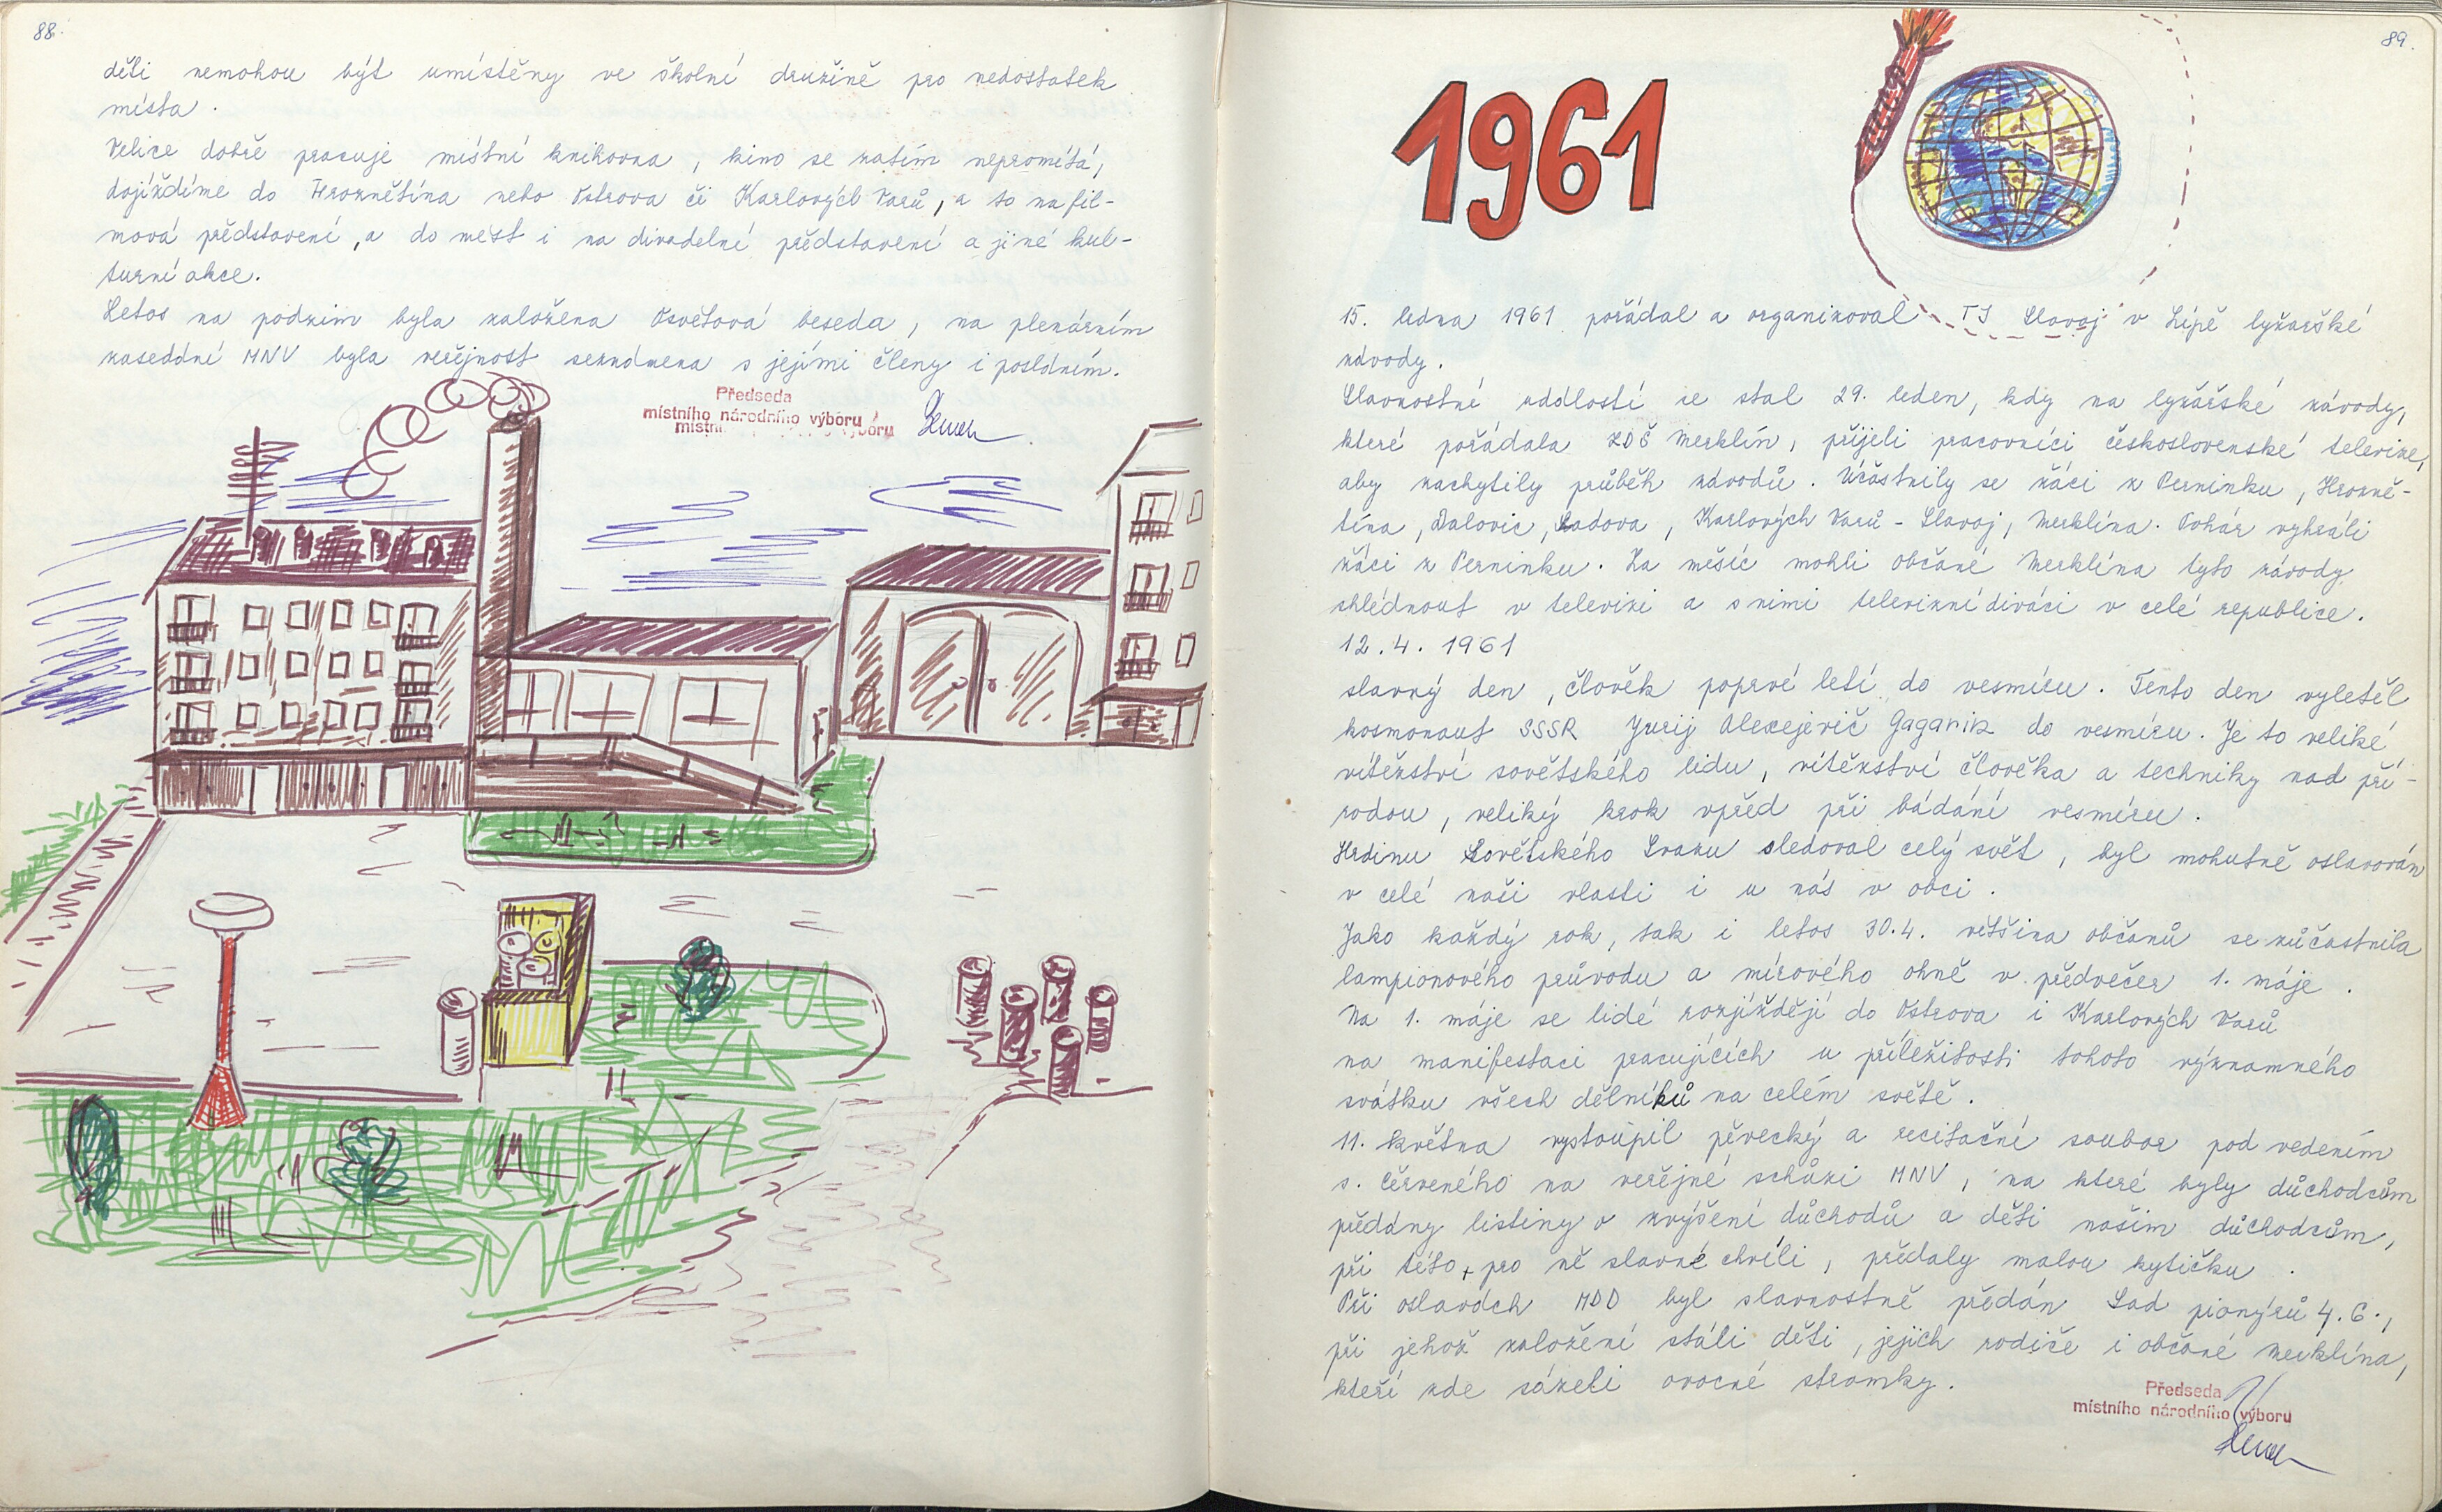 88.
děti nemohou být umístěny ve školní družině pro nedostatek
místa.
Velice dobře pracuje místní knihovna, kino se zatím nepromítá,
dojíždíme do Hroznětína nebo Ostrova či Karlových Varů, a to na fil-
mová představení, a do měst i na divadelní představení a jiné kul-
turní akce.
Letos na podzim byla založena Osvětová beseda, na plenárním
zasedání MNV byla veřejnost seznámena s jejími členy i posláním.
Předseda
místního národního výboru
89.
1961
15. ledna 1961 pořádal a organizoval TJ Slavoj v Lípě lyžařské
závody.
Slavnostní událostí se stal 29. leden, kdy na lyžařské závody,
které pořádala ZDŠ Merklín, přijeli pracovníci československé televize,
aby zachytily průběh závodů. Účastnily se žáci z Perninku, Hrozně-
tína, Dalovic, Sadova, Karlových Varů - Slavoj, Merklína. Pohár vyhráli
žáci z Perninku. Za měsíc mohli občané Merklína tyto závody
shlédnout v televizi a s nimi televizní diváci v celé republice.
12.4. 1961
slavný den, člověk poprvé letí do vesmíru. Tento den vyletěl
kosmonaut SSSR Jurij Alexejevič Gagarin do vesmíru. Je to veliké
vítězství sovětského lidu, vítězství člověka a techniky nad pří-
rodou, veliký krok vpřed při bádání vesmíru.
Hrdinu Sovětského Svazu sledoval celý svět, byl mohutně oslavován
v celé naší vlasti i u nás v obci.
Jako každý rok, tak i letos 30.4. většina občanů se zúčastnila
lampionového průvodu a mírového ohně v předvečer 1. máje.
Na 1. máje se lidé rozjíždějí do Ostrova i Karlových Varů
na manifestaci pracujících u příležitosti tohoto významného
svátku všech dělníků na celém světě.
11. května vystoupil pěvecký a recitační soubor pod vedením
s. Červeného na veřejné schůzi MNV, na které byly důchodcům
předány listiny o zvýšení důchodů a děti našim důchodcům,
při této, pro ně slavné chvíli, předaly malou kytičku.
Při oslavách MDD byl slavnostně předán Sad pionýrů 4.6.,
při jehož založení stáli děti, jejich rodiče i občané Merklína,
kteří zde sázeli ovocné stromky.
Předseda
místního národního výboru